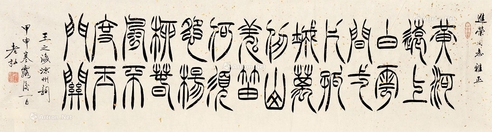 進榮同志雅正
黃河
遠上
白雲
間一
片孤
城萬
仞山
羌笛
何須
怨楊
柳春
風不
度玉
門關
王之渙涼州詞
甲申
老牡